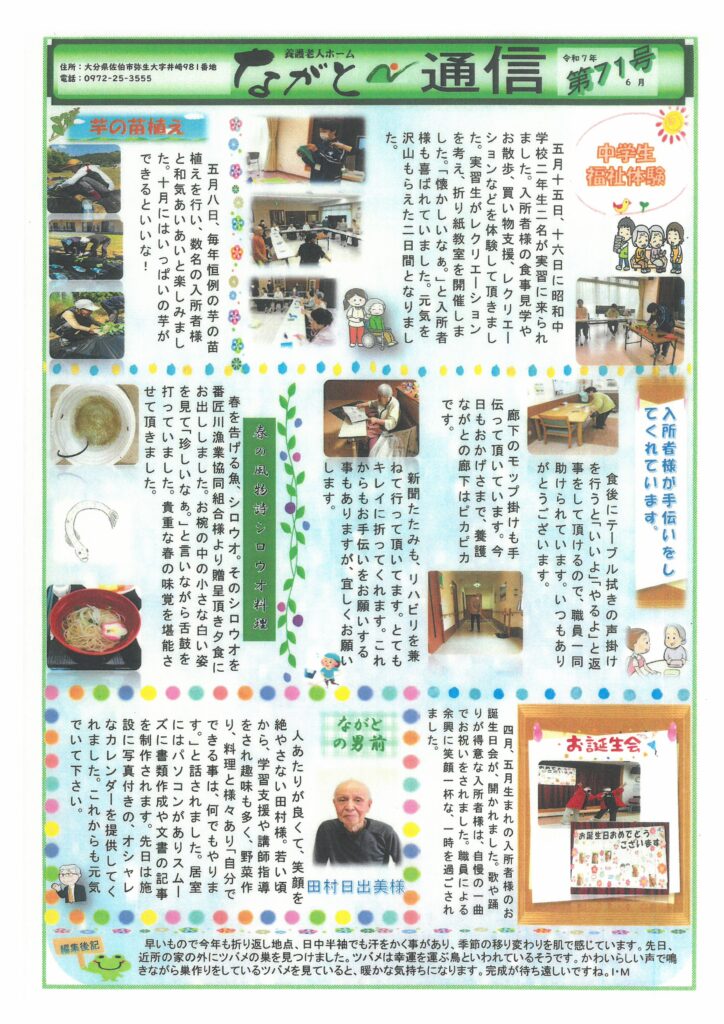 住所：大分県佐伯市弥生大字井崎981番地
電話：0972-25-3555
養護老人ホーム
ながと 通信
令和7年
第71号
6月
中学生
福祉体験
五月十五日、十六日に昭和中
学校二年生二名が実習に来られ
ました。入所者様の食事見学や
お散歩、買い物支援、レクリエー
ションなどを体験して頂きまし
た。実習生がレクリエーション
を考え、折り紙教室を開催しま
した。「懐かしいなぁ。」と入所者
様も喜ばれていました。元気を
沢山もらえた二日間となりまし
た。
芋の苗植え
五月八日、毎年恒例の芋の苗
植えを行い、数名の入所者様
と和気あいあいと楽しみまし
た。十月にはいっぱいの芋が
できるといいな！
入所者様が手伝いをし
てくれています。
食後にテーブル拭きの声掛け
を行うと「いいよ」「やるよ」と返
事をして頂けるので、職員一同
助けられています。いつもあり
がとうございます。
廊下のモップ掛けも手
伝って頂いています。今
日もおかげさまで、養護
ながとの廊下はピカピカ
です。
新聞たたみも、リハビリを兼
ねて行って頂いてます。とても
キレイに折ってくれます。これ
からもお手伝いをお願いする
事もありますが、宜しくお願い
します。
春の風物詩シロウオ料理
春を告げる魚、シロウオ。そのシロウオを
番匠川漁業協同組合様より贈呈頂き夕食に
お出ししました。お椀の中の小さな白い姿
を見て「珍しいなぁ。」と言いながら舌鼓を
打っていました。貴重な春の味覚を堪能さ
せて頂きました。
お誕生会
お誕生日おめでとう
ございます
四月、五月生まれの入所者様のお
誕生日会が、開かれました。歌や踊
りが得意な入所者様は、自慢の一曲
でお祝いをされました。職員による
余興に笑顔一杯な、一時を過ごされ
ました。
ながと
の男前
田村日出美様
人あたりが良くて、笑顔を
絶やさない田村様。若い頃
から、学習支援や講師指導
をされ趣味も多く、野菜作
り、料理と様々あり「自分で
できる事は、何でもやりま
す。」と話されました。居室
にはパソコンがありスムー
ズに書類作成や文書の記事
を制作されます。先日は施
設に写真付きの、オシャレ
なカレンダーを提供してく
れました。これからも元気
でいて下さい。
編集後記
早いもので今年も折り返し地点、日中半袖でも汗をかく事があり、季節の移り変わりを肌で感じています。先日、
近所の家の外にツバメの巣を見つけました。ツバメは幸運を運ぶ鳥といわれているそうです。かわいらしい声で鳴
きながら巣作りをしているツバメを見ていると、暖かな気持ちになります。完成が待ち遠しいですね。I・M